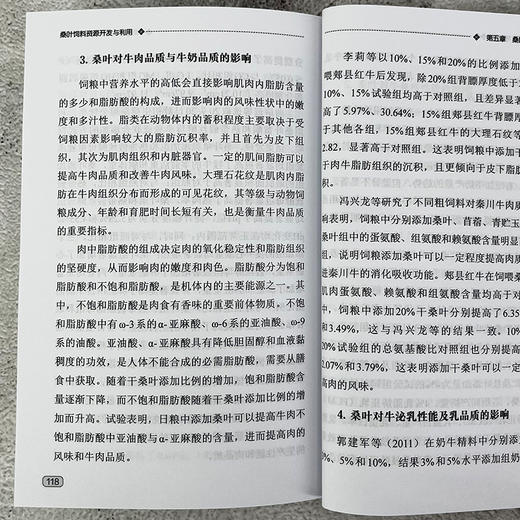 桑叶饲料资源开发与利用
3. 桑叶对牛肉品质与牛奶品质的影响
饲粮中营养水平的高低会直接影响肌肉内脂肪含量
的多少和脂肪酸的构成，进而影响肉的风味性状中的嫩
度和多汁性。脂类在动物体内的蓄积程度主要取决于受
饲粮因素影响较大的脂肪沉积率，并且首先为皮下组
织，其次为肌肉组织和内脏器官。一定的肌间脂肪可以
提高牛肉品质和改善牛肉风味。大理石花纹是肌肉内脂
肪在牛肉组织分布而形成的可见花纹，其等级与动物饲
粮成分、年龄和育肥时间长短有关，也是衡量牛肉品质
的重要指标。
肉中脂肪酸的组成决定肉的氧化稳定性和脂肪组织
的坚硬度，从而影响肉的嫩度和肉色。脂肪酸分为饱和
脂肪酸和不饱和脂肪酸，是机体内的主要能源之一。其
中，不饱和脂肪酸是肉食有香味的重要前体物质。不饱
和脂肪酸中有ω-3系的α-亚麻酸、ω-6系的亚油酸、ω-9
系的油酸。亚油酸、α-亚麻酸具有降低胆固醇和血液黏
稠度的功效，是人体不能合成的必需脂肪酸，需要从膳
食中获取。随着干桑叶添加比例的增加，饱和脂肪酸含
量逐渐下降，而不饱和脂肪酸随着干桑叶添加比例的增
加而升高。试验表明，日粮中添加桑叶可以提高牛肉不
饱和脂肪酸中亚油酸与α-亚麻酸的含量，进而提高肉的
风味和牛肉品质。
118
第五章 桑
李莉等以10%、15%和20%的比例添加
喂郏县红牛后发现，除20%组背膘厚度低于
10%、15%试验组均高于对照组，且差异显
了5.97%、30.64%；15%组郏县红牛背膘厚
于其他各组，15%组郏县红牛的大理石纹等
2.82，显著高于对照组。这表明饲粮中添加干
于肉牛脂肪组织的沉积，且更倾向于皮下脂肪
积。
冯兴龙等研究了不同粗饲料对秦川牛肉质
响表明，饲粮中分别添加桑叶、苜蓿、青贮玉
桑叶组中的蛋氨酸、组氨酸和赖氨酸含量明显
组，说明饲粮添加桑叶可以一定程度提高肉质
进秦川牛的消化吸收功能。郏县红牛在饲喂桑
肌肉蛋氨酸、赖氨酸和组氨酸含量均高于对
中，饲粮中添加20%干桑叶分别提高了6.35
和3.49%，这与冯兴龙等的结果一致。10%
20%试验组的总氨基酸比对照组也分别提高
2.07%和3.79%，这表明添加干桑叶可以提高
肉的风味。
4. 桑叶对牛泌乳性能及乳品质的影响
郭建军等（2011）在奶牛精料中分别添加
0%、5%和10%，结果3%和5%水平添加组奶